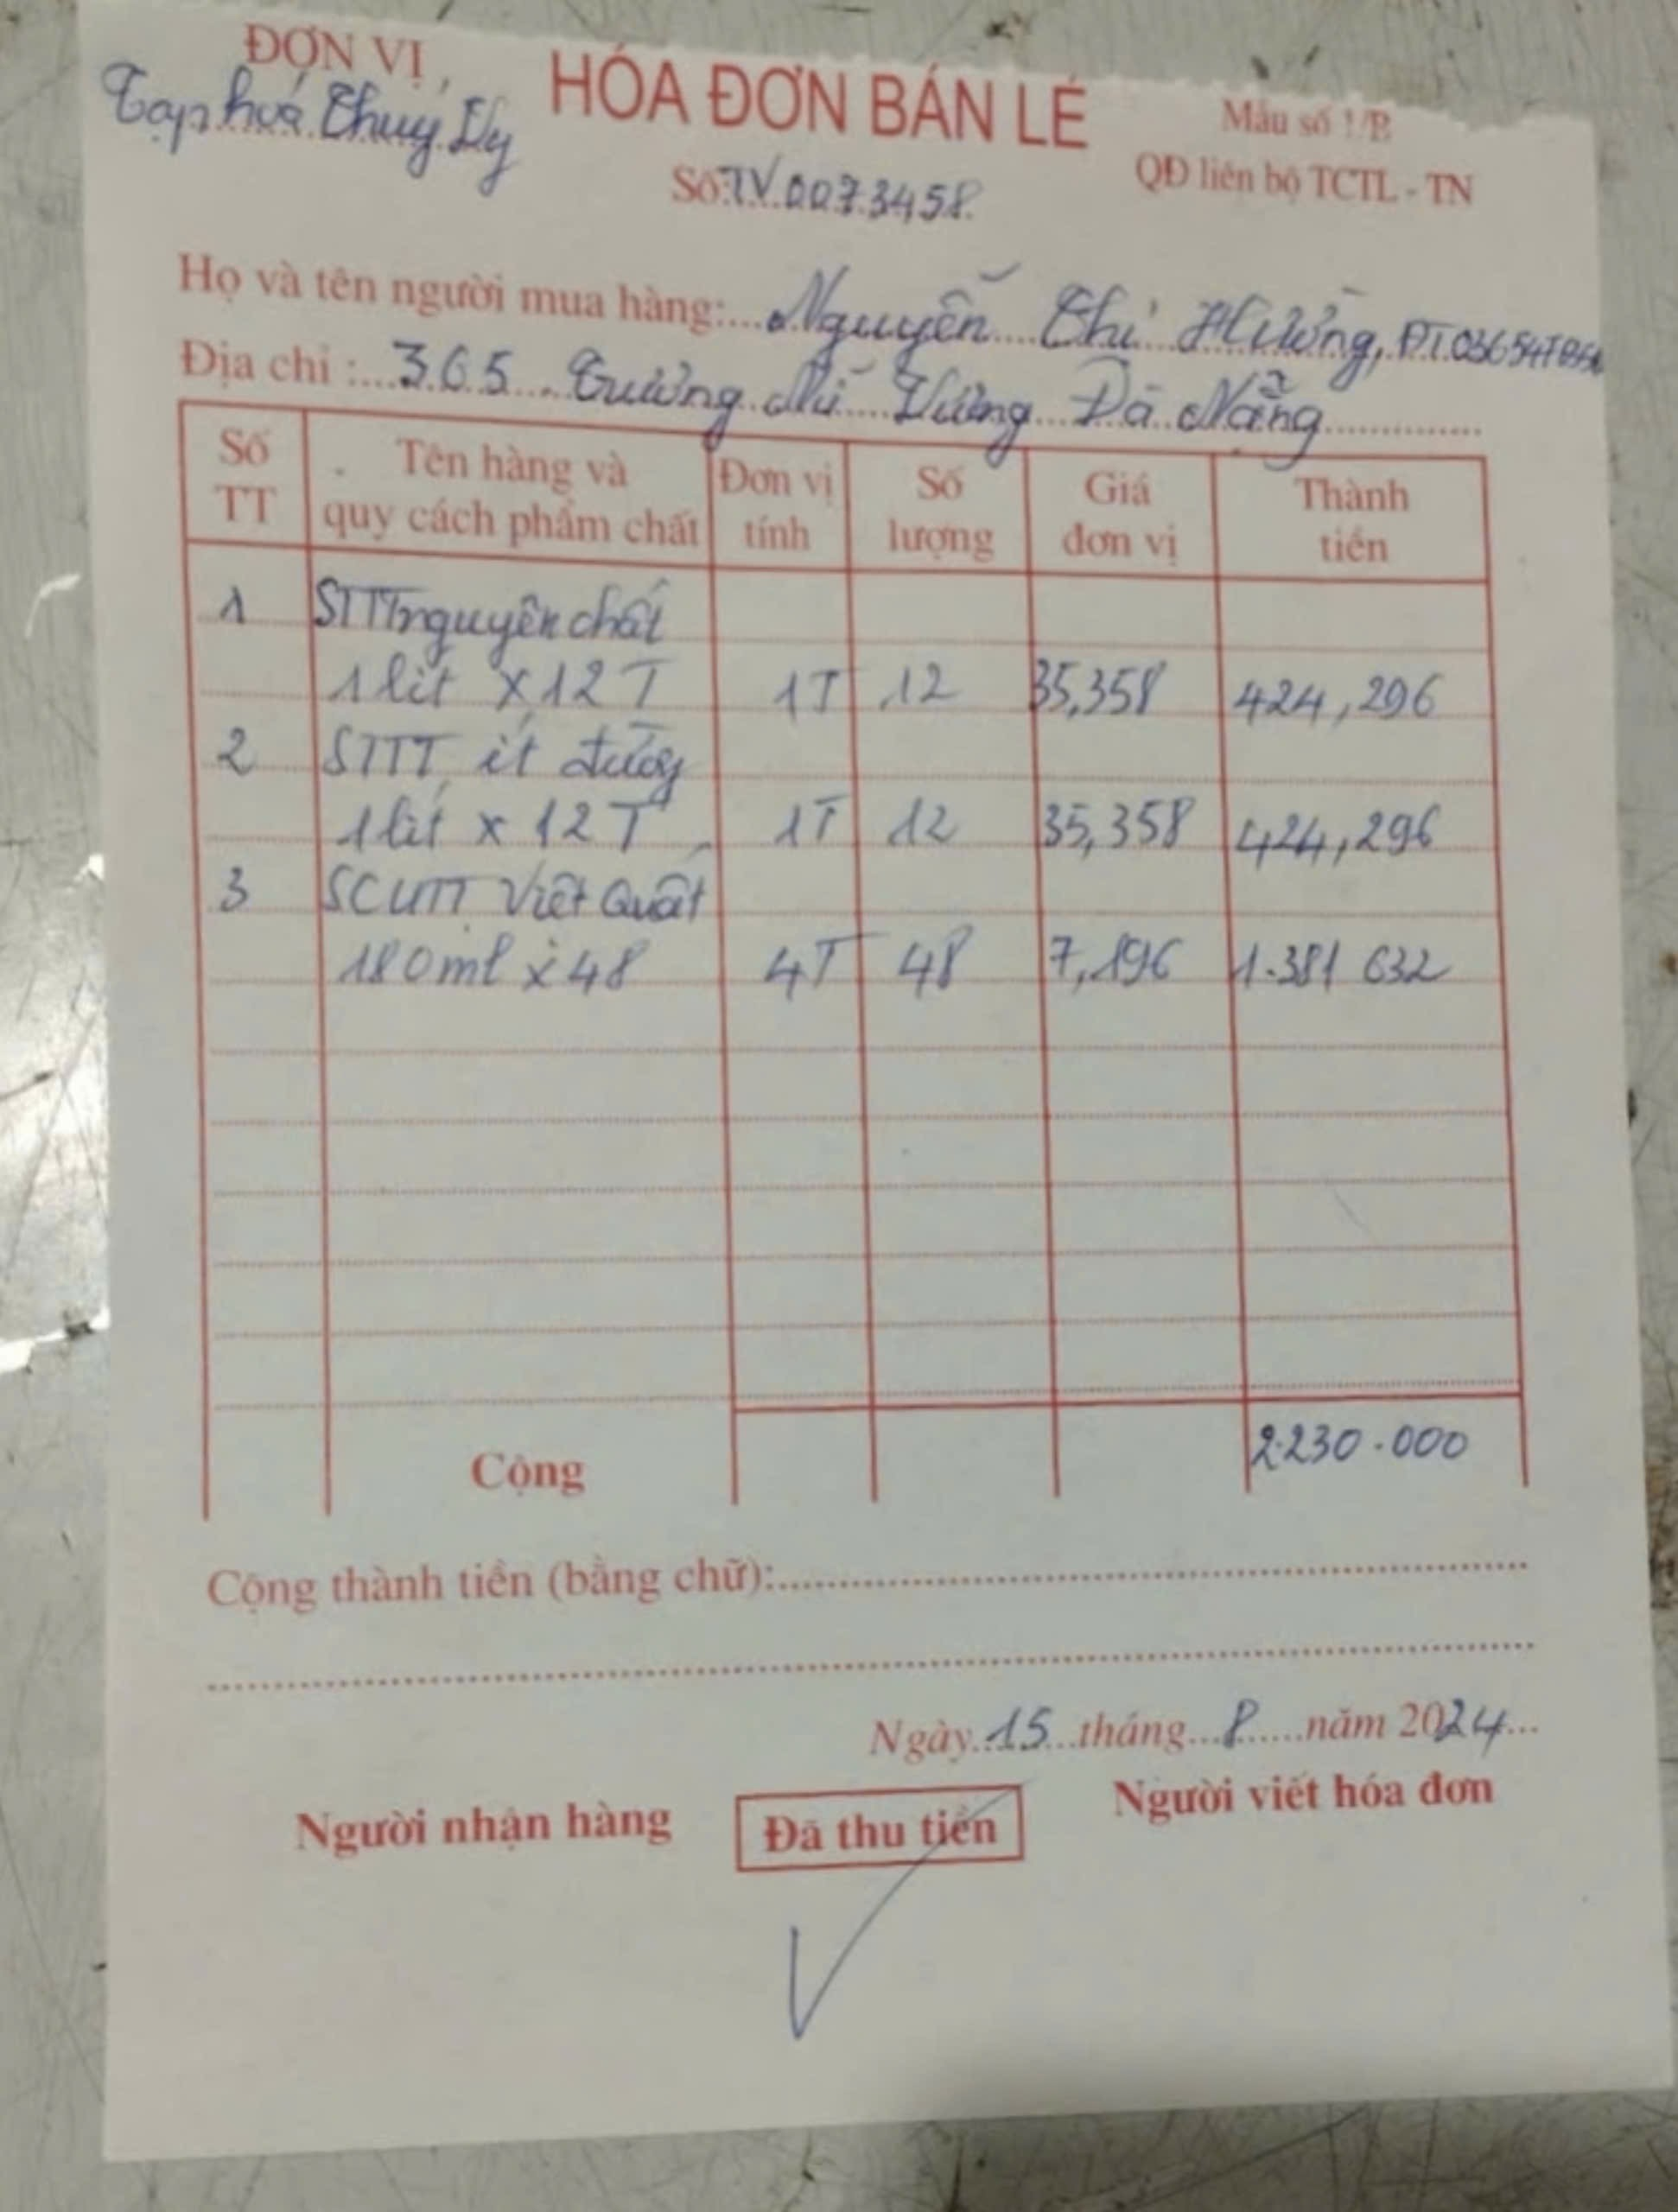 ĐƠN VỊ
Tạp hoá Thuý Vy
HÓA ĐƠN BÁN LẺ
Mẫu số 1/B
QĐ liên bộ TCTL - TN
Số: TV.0073458
Họ và tên người mua hàng: Nguyễn Thị Hường, ĐT
Địa chỉ : 365 Trưng Nữ Vương Đà Nẵng
Số TT Tên hàng và quy cách phẩm chất Đơn vị tính Số lượng Giá đơn vị Thành tiền
1 STTT nguyên chất
1 lít x 12 T 1T 12 35,358 424,296
2 STTT ít đường
1 lít x 12 T 1T 12 35,358 424,296
3 SCUTT Việt Quất
180ml x 48 4T 48 7,196 1.381 632
Cộng 2.230.000
Cộng thành tiền (bằng chữ):
Ngày 15 tháng 8 năm 2024
Người nhận hàng Đã thu tiền Người viết hóa đơn